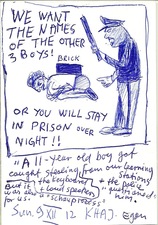 WE WANT
THE NAMES
OF THE OTHER
3 BOYS!
BRICK
OR YOU WILL STAY
IN PRISON OVER
NIGHT!!
"A 11-year old boy got
caught stealing from our learning
stations
But it the keyboard + the police
was also + loud speakers "questioned"
for us. a "schaupress" him.
Sun. 9 XII 12 KHAJ- Egon